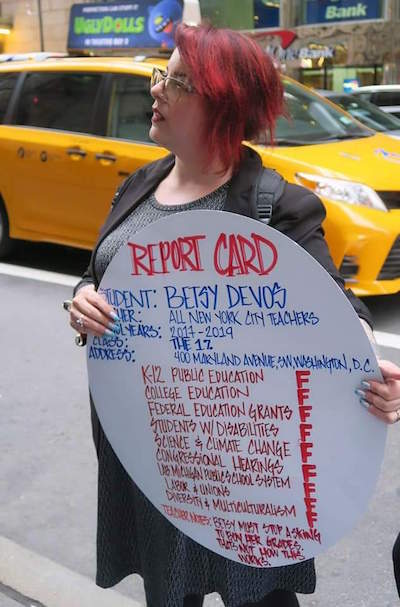 UGLYDOLLS
IN THEATERS MAY 3
Bank
Bank
REPORT CARD
STUDENT: BETSY DEVOS
ALL NEW YORK CITY TEACHERS
YEARS: 2017-2019
CLASS: THE 1%
ADDRESS: 400 MARYLAND AVENUE, SW, WASHINGTON, D.C.
K-12 PUBLIC EDUCATION F
COLLEGE EDUCATION F
FEDERAL EDUCATION GRANTS F
STUDENTS W/ DISABILITIES F
SCIENCE & CLIMATE CHANGE F
CONGRESSIONAL HEARINGS F
MICHIGAN PUBLIC SCHOOL SYSTEM F
LABOR & UNIONS F
DIVERSITY & MULTICULTURALISM F
TEACHER NOTES: BETSY MUST STOP ASKING
TO BUY HER GRADES.
THAT'S NOT HOW THIS
WORKS.